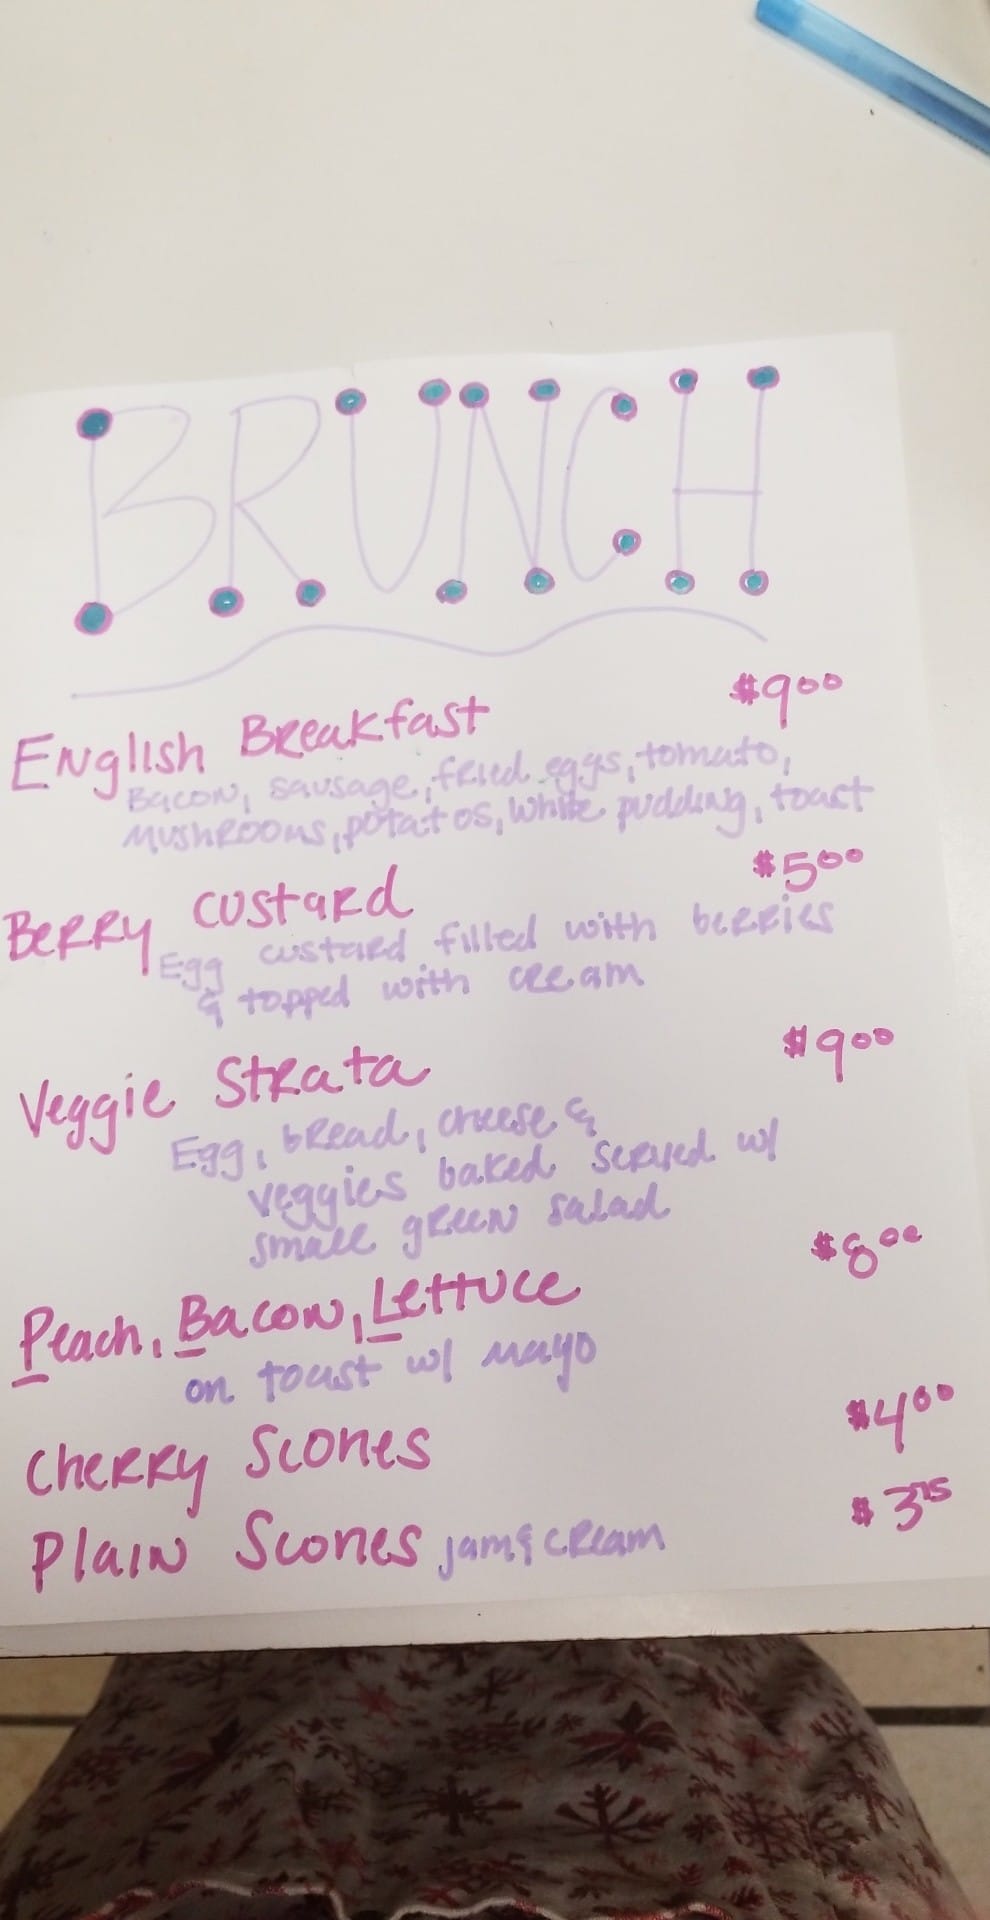 BRUNCH
English Breakfast $9.00
Bacon, sausage, fried eggs, tomato,
mushrooms, potatos, white pudding, toast
Berry Custard $5.00
Egg custard filled with berries
& topped with cream
Veggie Strata $9.00
Egg, bread, cheese &
veggies baked served w/
small green salad
Peach, Bacon, Lettuce $8.00
on toast w/ mayo
Cherry Scones $4.00
Plain Scones jam & cream $3.75